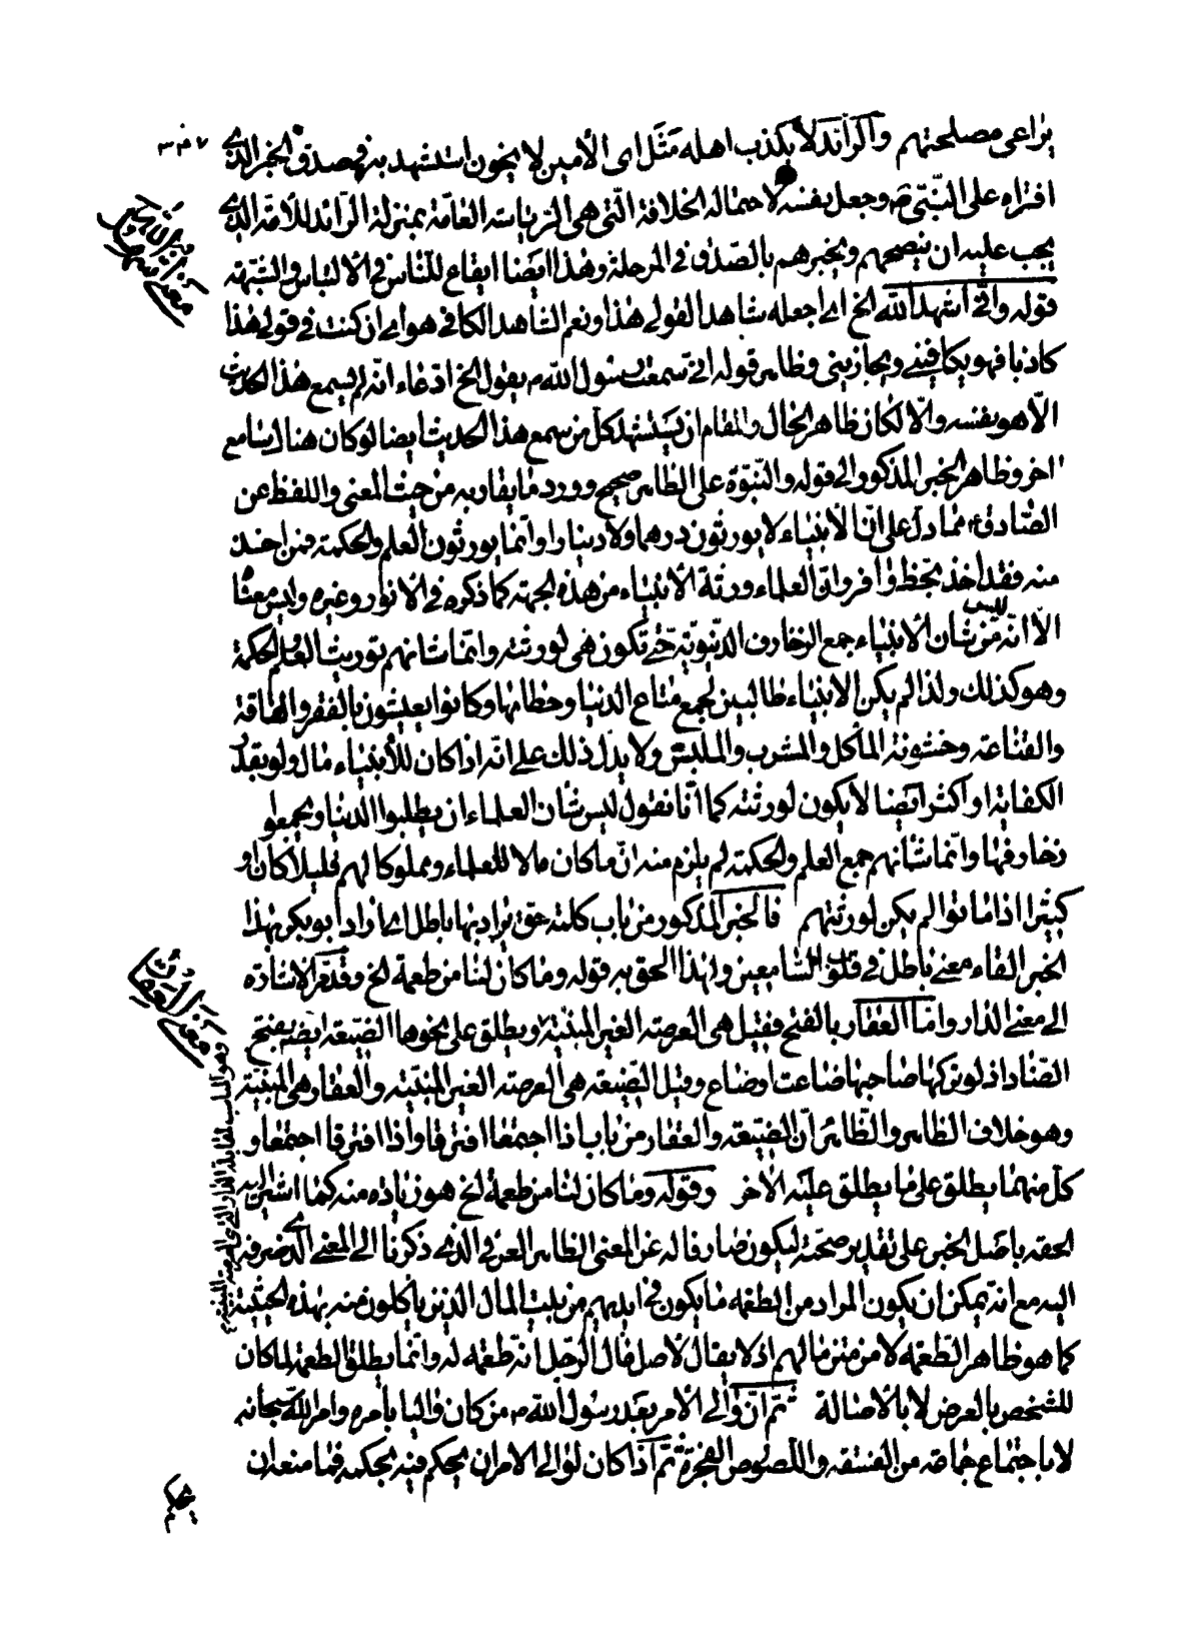 ٣٠٧
يراعى مصلحتهم والرائد لا يكذب اهله مثل اى الأمين لا يخون استشهد به فى صدق الخبر الذى
افتراه على النبى ص وجعل نفسه لاحتماله الخلافة التى هى الرياسة العامة بمنزلة الرائد للأمة الذى
يجب عليه ان ينصحهم ويخبرهم بالصدق فى المرحلة وهذا ايضا ايقاع للناس فى الالتباس والشبهة
قوله وانى اشهد الله الخ اى اجعله شاهدا لقولى هذا ونعم الشاهد الكافى هو اى ان كنت فى قولى هذا
كاذبا فهو يكافينى ويجازينى وظاهر قوله انى سمعت رسول الله ص يقول الخ ادعاء انه لم يسمع هذا الحديث
الا هو بنفسه والا لكان ظاهر الحال والمقام ان يستشهد كل من سمع هذا الحديث ايضا لو كان هنالك سامع
اخر وظاهر الخبر المذكور الى قوله والنبوة على الظاهر صحيح وورد ما يقاربه من حيث المعنى واللفظ عن
الصادق ع مما دل على ان الأنبياء لا يورثون درهما ولا دينارا وانما يورثون العلم والحكمة فمن اخذ
منه فقد اخذ بحظ وافر وان العلماء ورثة الأنبياء من هذه الجهة كما ذكره فى الانوار وغيره وليس معناه
الا انه ليس من شان الأنبياء جمع الزخارف الدنيوية حتى تكون هى لورثته وانما شانهم توريث العلم والحكمة
وهو كذلك ولذا لم يكن الانبياء طالبين لجمع متاع الدنيا وحطامها وكانوا يعيشون بالفقر والفاقة
والقناعة وخشونة المأكل والمشرب والملبس ولا يدل ذلك على انه اذا كان للأنبياء مال ولو بقدر
الكفاية او اكثر ايضا لا يكون لورثته كما انا نقول ليس شأن العلماء ان يطلبوا الدنيا ويجمعوا
زخارفها وانما شانهم جمع العلم والحكمة لم يلزم منه ان ما كان مالا للعلماء ومملوكا لهم قليلا كان او
كثيرا اذا ماتوا لم يكن لورثتهم فالخبر المذكور من باب كلمة حق يراد بها باطل اى اراد ابو بكر بهذا
الخبر القاء معنى باطل فى قلوب السامعين ولهذا الحق به قوله وما كان لنا من طعمة الخ وقد مر الاشارة
الى معنى الدار واما العقار بالفتح فقيل هى العرصة الغير المبنية ويطلق على نحوها الضيعة ايضا بفتح
الضاد اذ لو تركها صاحبها ضاعت اوضاع وقيل الضيعة هى العرصة الغير المبنية والعقار هى المبنية
وهو خلاف الظاهر والظاهر ان الضيعة والعقار من باب اذا اجتمعا افترقا واذا افترقا اجتمعا و
كل منهما يطلق على ما يطلق عليه الاخر وقوله وما كان لنا من طعمة الخ هو زيادة منه كما اشير اليه
الحقه باصل الخبر على تقدير صحته ليكون صارفا له عن المعنى الظاهر العرفى الذى ذكرنا الى المعنى الذى صرفه
اليه مع انه يمكن ان يكون المراد من الطعمة ما يكون فى ايديهم من بيت المال الذين ياكلون منه بهذه الحيثية
كما هو ظاهر الطعمة لا من متن مالهم اذ لا يقال لاصل مال الرجل انه طعمة له وانما يطلق الطعمة لما كان
للشخص بالعرض لا بالاصالة ثم ان والى الأمر بعد رسول الله ص من كان واليا بأمره وامر الله سبحانه
لا باجتماع جماعة من الفسقة واللصوص الفجرة ثم اذا كان لوالى الامر ان يحكم فيه بحكمه فما منعه ان
يحكم
معنى العقار